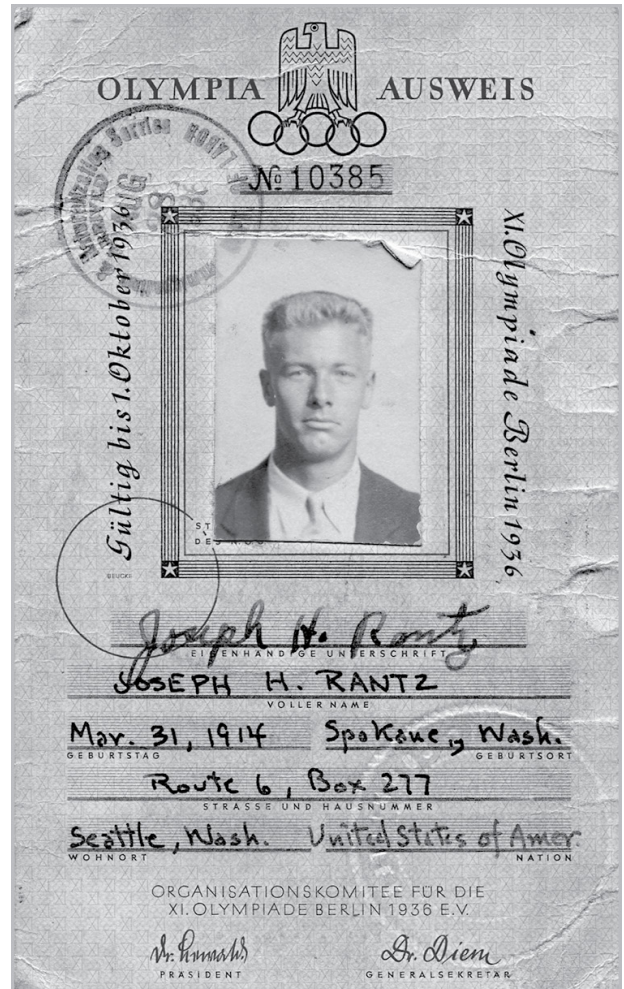 OLYMPIA AUSWEIS
№ 10385
Gültig bis 1. Oktober 1936
XI. Olympiade Berlin 1936
Joseph H. Rantz
EIGENHÄNDIGE UNTERSCHRIFT
JOSEPH H. RANTZ
VOLLER NAME
Mar. 31, 1914 Spokane, Wash.
GEBURTSTAG GEBURTSORT
Route 6, Box 277
STRASSE UND HAUSNUMMER
Seattle, Wash. United States of Amer.
WOHNORT NATION
ORGANISATIONSKOMITEE FÜR DIE
XI. OLYMPIADE BERLIN 1936 E.V.
Dr. Lewald Dr. Diem
PRÄSIDENT GENERALSEKRETÄR